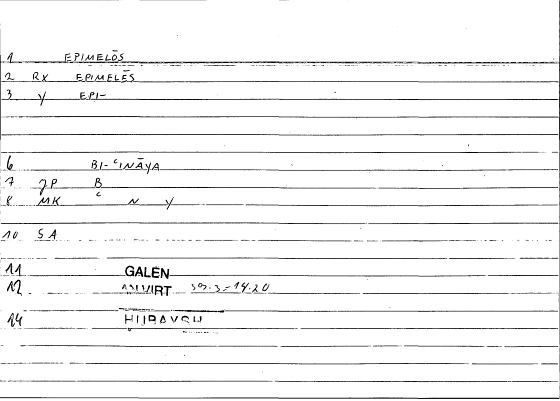 1 EPIMELŌS
2 RX EPIMELĒS
3 Y EPI-
6 BI-ʿINĀYA
7 JP B
8 MK ʿ N Y
10 SA
11 GALEN
12 ANVIRT 59.3=14.20
14 HUBAYSH